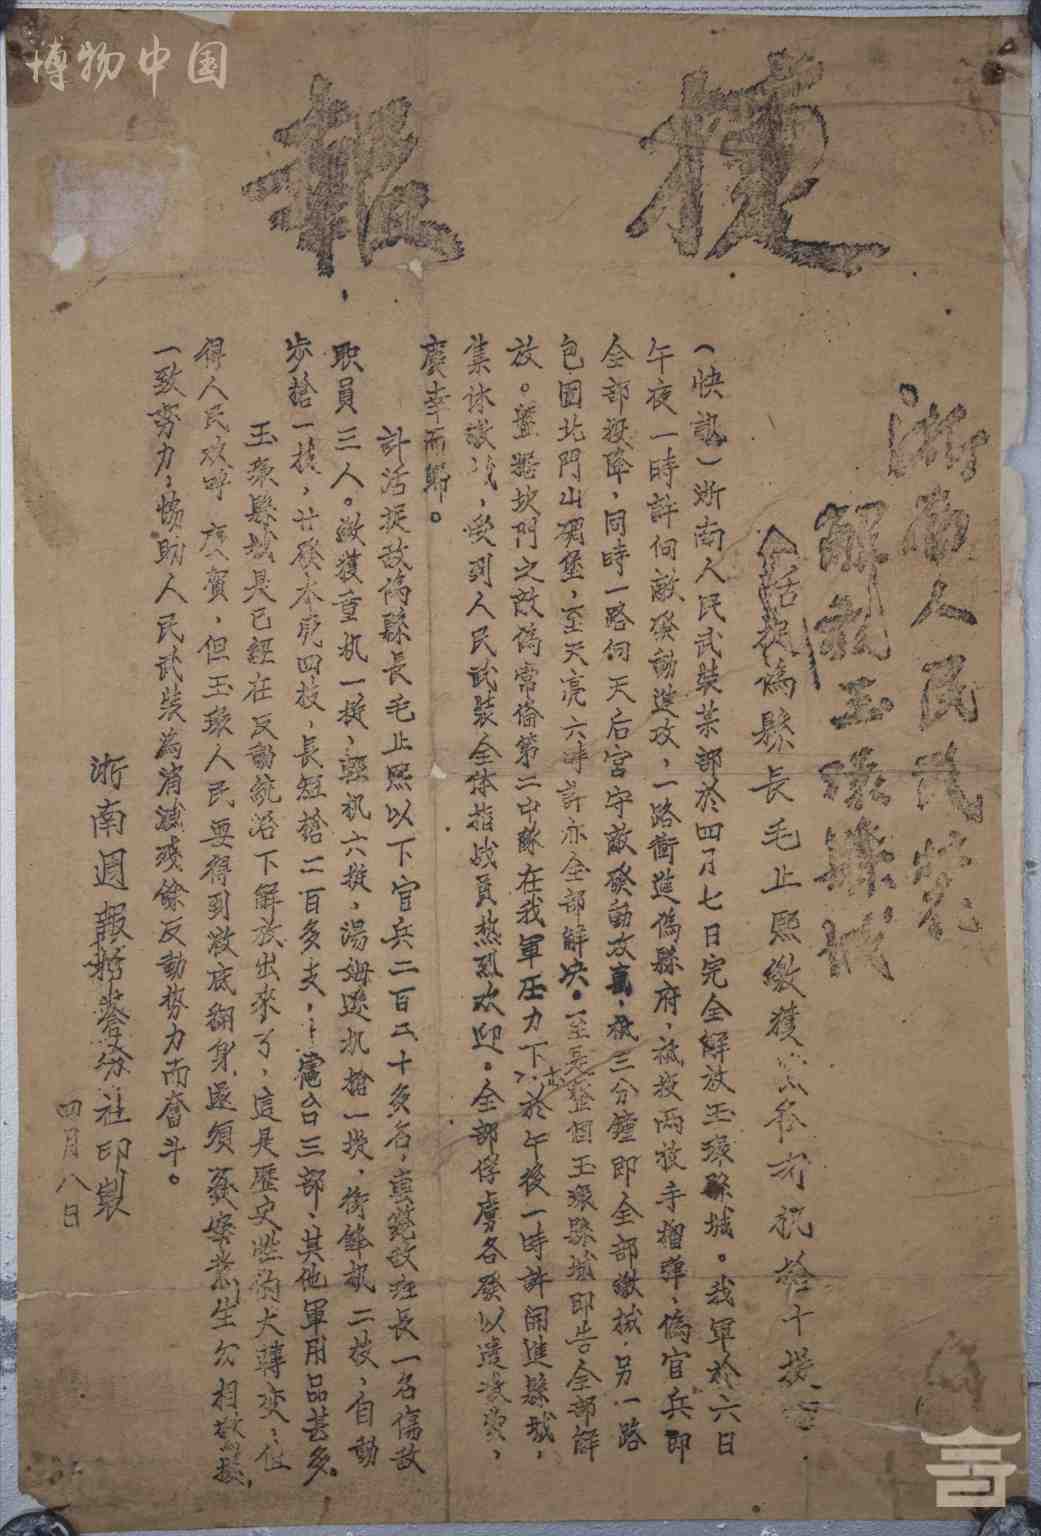 博物中国
捷報
浙南人民武裝
解放玉環縣城
活捉偽縣長毛止熙繳獲
机槍十挺
（快訊）浙南人民武裝某部於四月七日完全解放玉環縣城。我軍於六日
午夜一時許向敵發動進攻，一路衝進偽縣府，祗投兩枚手榴彈，偽官兵即
全部投降，同時一路向天后宮守敵發動攻擊，祗三分鐘即全部繳械，另一路
包圍北門山碉堡，至天亮六時許亦全部解决。至是整個玉環縣城即告全部解
放。盤踞坎門之敵偽常備第二中隊在我軍压力下，於午後一時許開進縣城，
集体，受到人民武裝全体指战員热烈欢迎。全部俘虜各發以遣散費，
慶幸而歸。
計活捉敌偽縣長毛止熙以下官兵二百二十多名，斃敌班長一名傷敌
职員三人。繳獲重机一挺，輕机六挺，湯姆逊机槍一挺，衝鋒机二枝，自動
步槍一枝，廿發木壳四枝，長短槍二百多支，電台三部，其他軍用品甚多。
玉環縣城是已經在反動統治下解放出來了，這是歷史性的大轉变，值
得人民欢呼慶賀，但玉環人民要得到澈底翻身，还須
一致努力，協助人民武裝為消滅殘餘反動勢力而奮斗。
浙南週報括蒼分社印製
四月八日